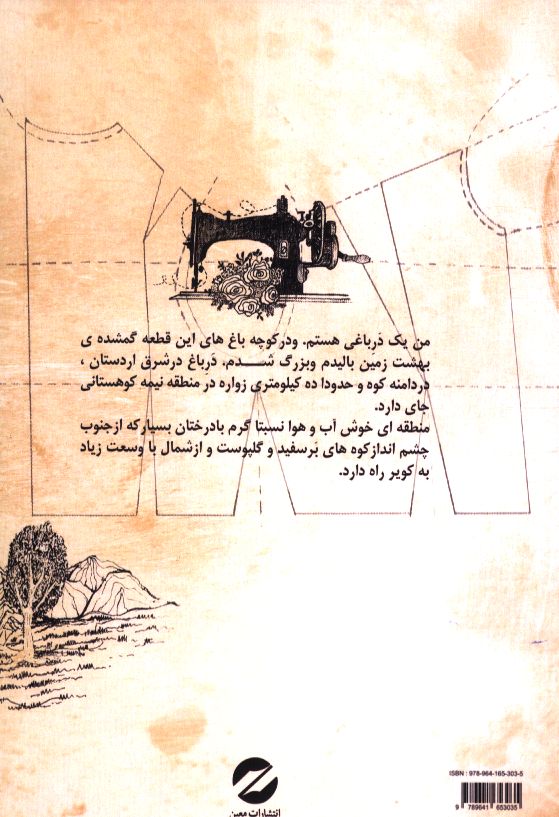 من یک دَرباغی هستم. ودرکوچه باغ های این قطعه گمشده ی
بهشت زمین بالیدم وبزرگ شـــدم. دَرباغ درشرق اردستان ،
دردامنه کوه و حدودا ده کیلومتری زواره در منطقه نیمه کوهستانی
جای دارد.
منطقه ای خوش آب و هوا نسبتا گرم بادرختان بسیارکه ازجنوب
چشم اندازکوه های بَرسفید و گلپوست و ازشمال با وسعت زیاد
به کویر راه دارد.
انتشارات معین
ISBN : 978-964-165-303-5
9 789641 653035